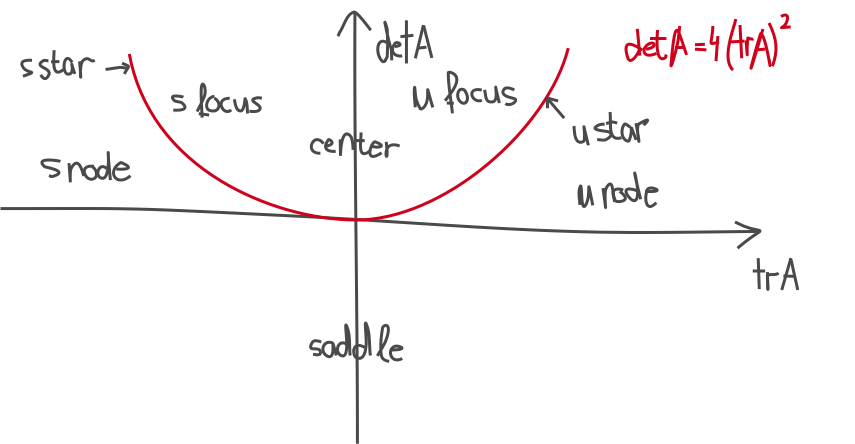 detA
detA = 4(trA)²
s star
s focus
u focus
center
u star
s node
u node
trA
saddle